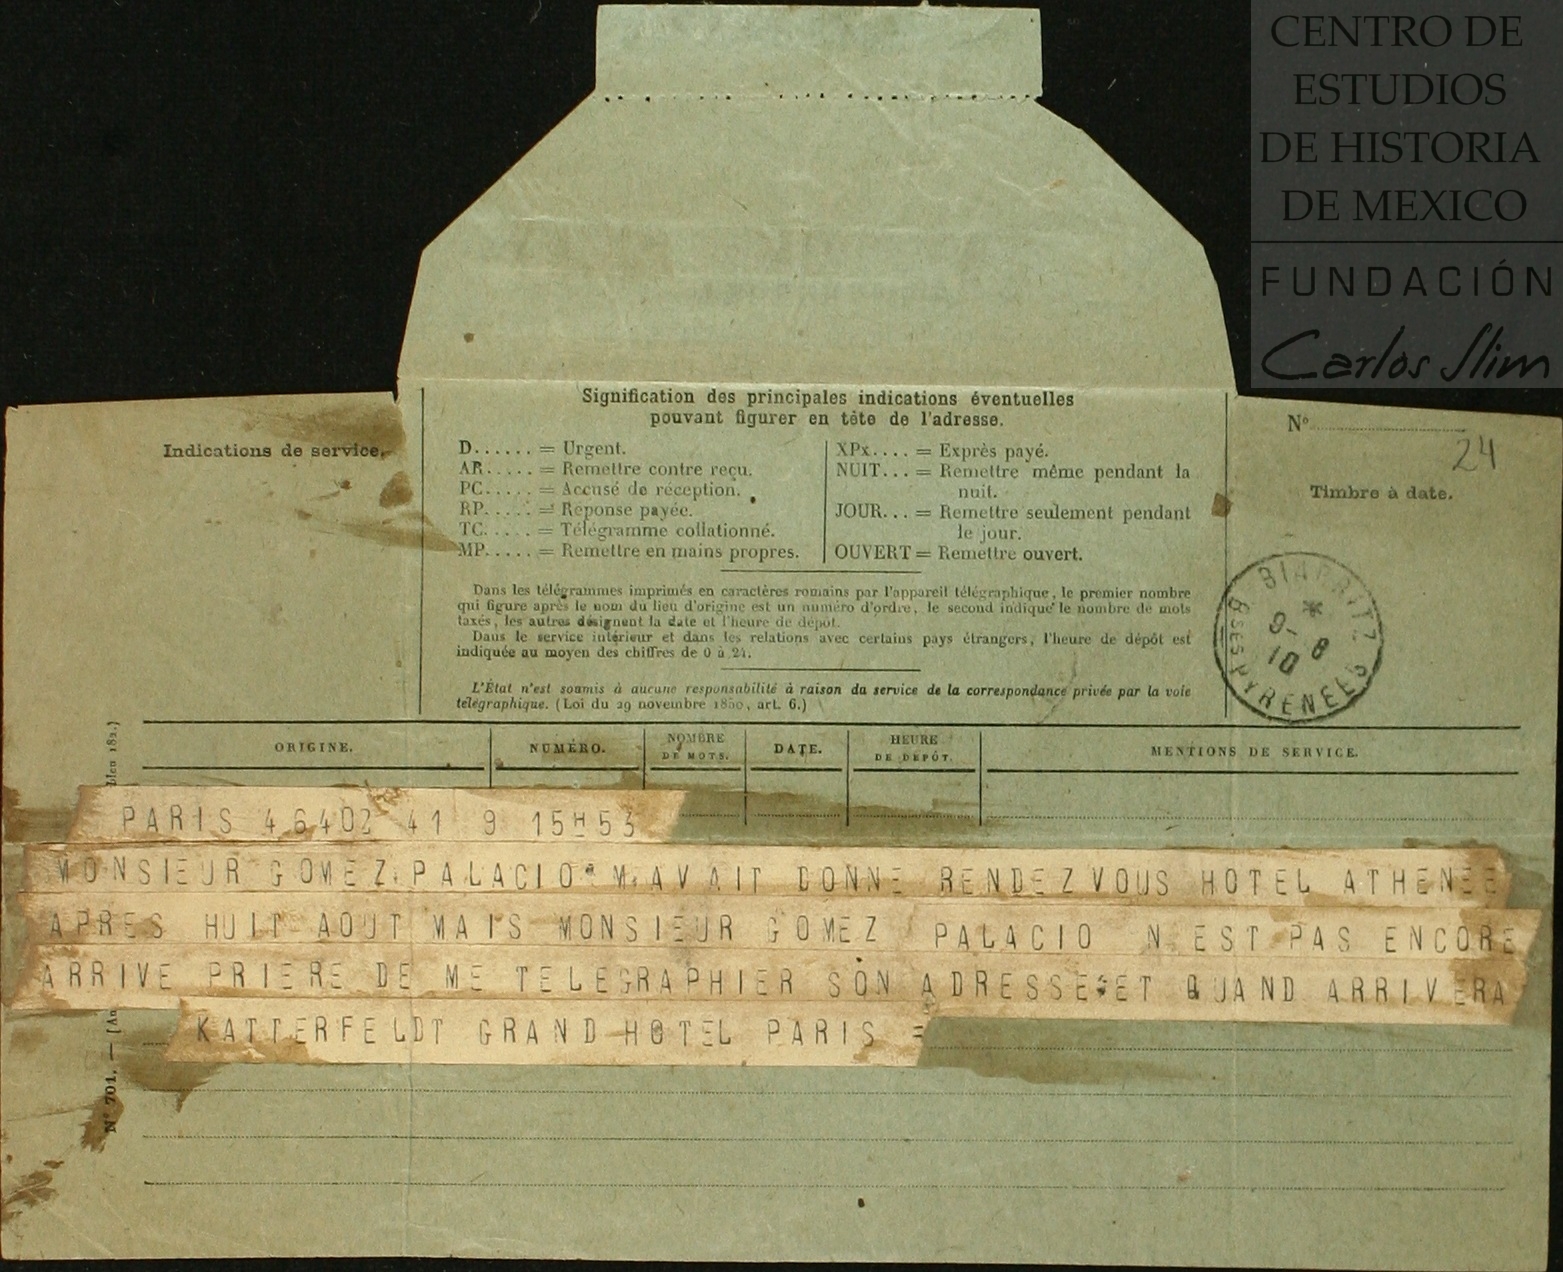 CENTRO DE
ESTUDIOS
DE HISTORIA
DE MEXICO
FUNDACIÓN
Carlos Slim
Signification des principales indications éventuelles
pouvant figurer en tête de l'adresse.
Indications de service.
D...... = Urgent.
AR..... = Remettre contre reçu.
PC..... = Accusé de réception.
RP..... = Réponse payée.
TC..... = Télégramme collationné.
MP..... = Remettre en mains propres.
XPx.... = Exprès payé.
NUIT... = Remettre même pendant la
nuit.
JOUR... = Remettre seulement pendant
le jour.
OUVERT = Remettre ouvert.
Nº
24
Timbre à date.
Dans les télégrammes imprimés en caractères romains par l'appareil télégraphique, le premier nombre
qui figure après le nom du lieu d'origine est un numéro d'ordre, le second indique le nombre de mots
taxés, les autres désignent la date et l'heure de dépôt.
Dans le service intérieur et dans les relations avec certains pays étrangers, l'heure de dépôt est
indiquée au moyen des chiffres de 0 à 24.
L'État n'est soumis à aucune responsabilité à raison du service de la correspondance privée par la voie
télégraphique. (Loi du 29 novembre 1850, art. 6.)
BIARRITZ
9 - 8
10
BSES PYRENEES
ORIGINE.
NUMÉRO.
NOMBRE
DE MOTS.
DATE.
HEURE
DE DÉPÔT.
MENTIONS DE SERVICE.
PARIS 46402 41 9 15H53
MONSIEUR GOMEZ PALACIO M AVAIT DONNE RENDEZVOUS HOTEL ATHENEE
APRES HUIT AOUT MAIS MONSIEUR GOMEZ PALACIO N EST PAS ENCORE
ARRIVE PRIERE DE ME TELEGRAPHIER SON ADRESSE ET QUAND ARRIVERA
KATTERFELDT GRAND HOTEL PARIS =
Nº 701. —